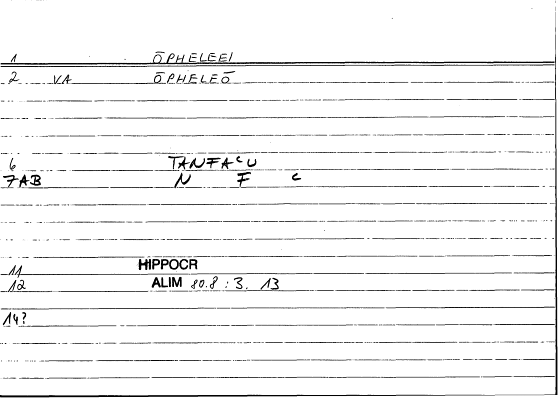 1 ŌPHELEEI
2 VA ŌPHELEŌ
6 TANFACU
7AB N F C
11 HIPPOCR
12 ALIM 80.8 : 3. 13
14?